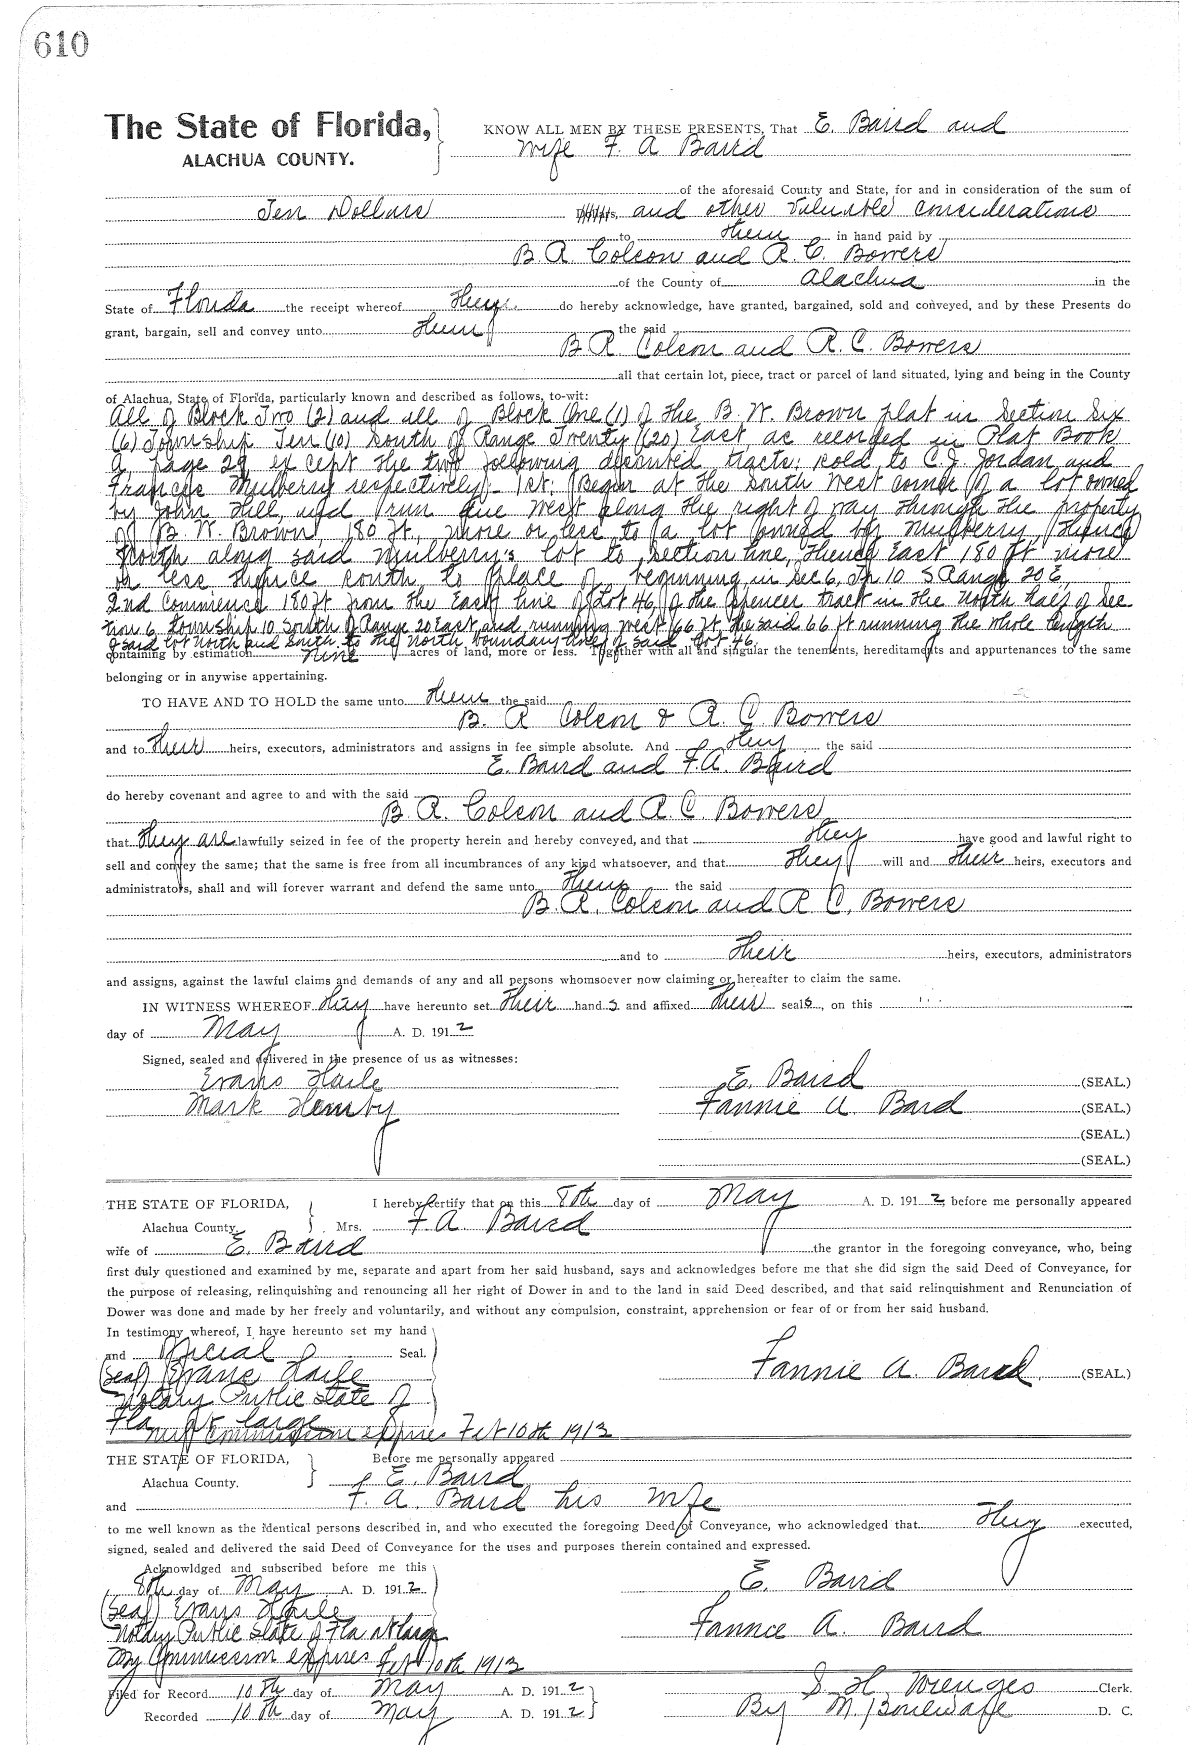 610
The State of Florida,
ALACHUA COUNTY.
KNOW ALL MEN BY THESE PRESENTS, That E. Baird and
wife F. A Baird
of the aforesaid County and State, for and in consideration of the sum of
Ten Dollars and other valuable considerations
to them in hand paid by
B. R Colson and R. C. Bowers
of the County of Alachua in the
State of Florida the receipt whereof they do hereby acknowledge, have granted, bargained, sold and conveyed, and by these Presents do
grant, bargain, sell and convey unto them the said
B R. Colson and R. C. Bowers
all that certain lot, piece, tract or parcel of land situated, lying and being in the County
of Alachua, State of Florida, particularly known and described as follows, to-wit:
All of Block Two (2) and all of Block One (1) of the B. W. Brown plat in Section Six
(6) Township Ten (10) South of Range Twenty (20) East as recorded in Plat Book
page 29 except the two following described tracts; sold to C. J. Jordan and
Francis Mulberry respectively - 1st: Begin at the South West corner of a lot owned
by John Hill, and run due west along the right of way through the property
of B. W. Brown, 180 ft, more or less to a lot owned by Mulberry, Thence
North along said Mulberry's lot to section line, thence East 180 ft more
or less thence south to place of beginning in Sec 6, Tp 10 S Range 20 E,
2nd Commence 180 ft from the East line of Lot 46 of the Spencer tract in the North half of Sec-
tion 6 township 10 South of Range 20 East and running west 66 ft. the said 66 ft running the whole length
of said lot North and South to the North boundary line of said lot 46.
containing by estimation Nine acres of land, more or less. Together with all and singular the tenements, hereditaments and appurtenances to the same
belonging or in anywise appertaining.
TO HAVE AND TO HOLD the same unto them the said
B. R Colson & R. C Bowers
and to their heirs, executors, administrators and assigns in fee simple absolute. And they the said
E. Baird and F. A. Baird
do hereby covenant and agree to and with the said
B. R. Colson and R. C. Bowers
that they are lawfully seized in fee of the property herein and hereby conveyed, and that they have good and lawful right to
sell and convey the same; that the same is free from all incumbrances of any kind whatsoever, and that they will and their heirs, executors and
administrators, shall and will forever warrant and defend the same unto them the said
B. R. Colson and R C. Bowers
and to their heirs, executors, administrators
and assigns, against the lawful claims and demands of any and all persons whomsoever now claiming or hereafter to claim the same.
IN WITNESS WHEREOF they have hereunto set their hand s and affixed their seals, on this
day of May A. D. 1912
Signed, sealed and delivered in the presence of us as witnesses:
Evans Haile
E. Baird (SEAL.)
Mark Hemby
Fannie A. Bard (SEAL.)
(SEAL.)
(SEAL.)
THE STATE OF FLORIDA,
Alachua County.
I hereby certify that on this 8th day of May A. D. 1912, before me personally appeared
Mrs. F. A. Baird
wife of E. Baird the grantor in the foregoing conveyance, who, being
first duly questioned and examined by me, separate and apart from her said husband, says and acknowledges before me that she did sign the said Deed of Conveyance, for
the purpose of releasing, relinquishing and renouncing all her right of Dower in and to the land in said Deed described, and that said relinquishment and Renunciation of
Dower was done and made by her freely and voluntarily, and without any compulsion, constraint, apprehension or fear of or from her said husband.
In testimony whereof, I have hereunto set my hand
and official Seal.
(Seal) Evans Haile
Fannie A. Baird (SEAL.)
Notary Public State of
Fla at large
my Commission expires Feb 10th 1913
THE STATE OF FLORIDA,
Alachua County.
Before me personally appeared
E. Baird
and F. A. Baird his wife
to me well known as the identical persons described in, and who executed the foregoing Deed of Conveyance, who acknowledged that they executed,
signed, sealed and delivered the said Deed of Conveyance for the uses and purposes therein contained and expressed.
Acknowldged and subscribed before me this
8th day of May A. D. 1912
E. Baird
(Seal) Evans Haile
Notary Public State of Fla at large
Fannie A. Baird
My Commission expires Feb 10th 1913
Filed for Record 10th day of May A. D. 1912
S. H. Wienges Clerk.
Recorded 10th day of May A. D. 1912
By M. Boulware D. C.